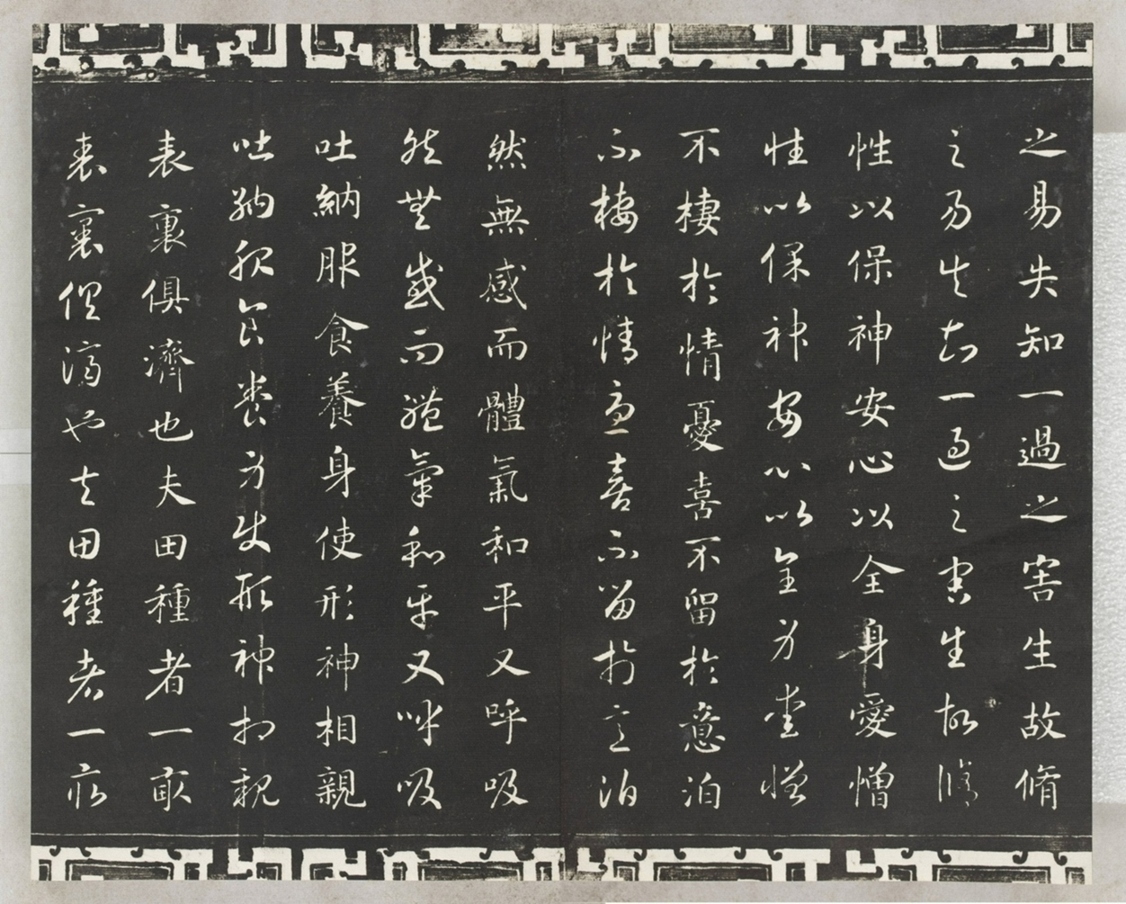 之易失知一過之害生故脩
之易失知一過之害生故脩
性以保神安心以全身愛憎
性以保神安心以全身愛憎
不棲於情憂喜不留於意泊
不棲於情憂喜不留於意泊
然無感而體氣和平又呼吸
然無感而體氣和平又呼吸
吐納服食養身使形神相親
吐納服食養身使形神相親
表裏俱濟也夫田種者一畝
表裏俱濟也夫田種者一畝